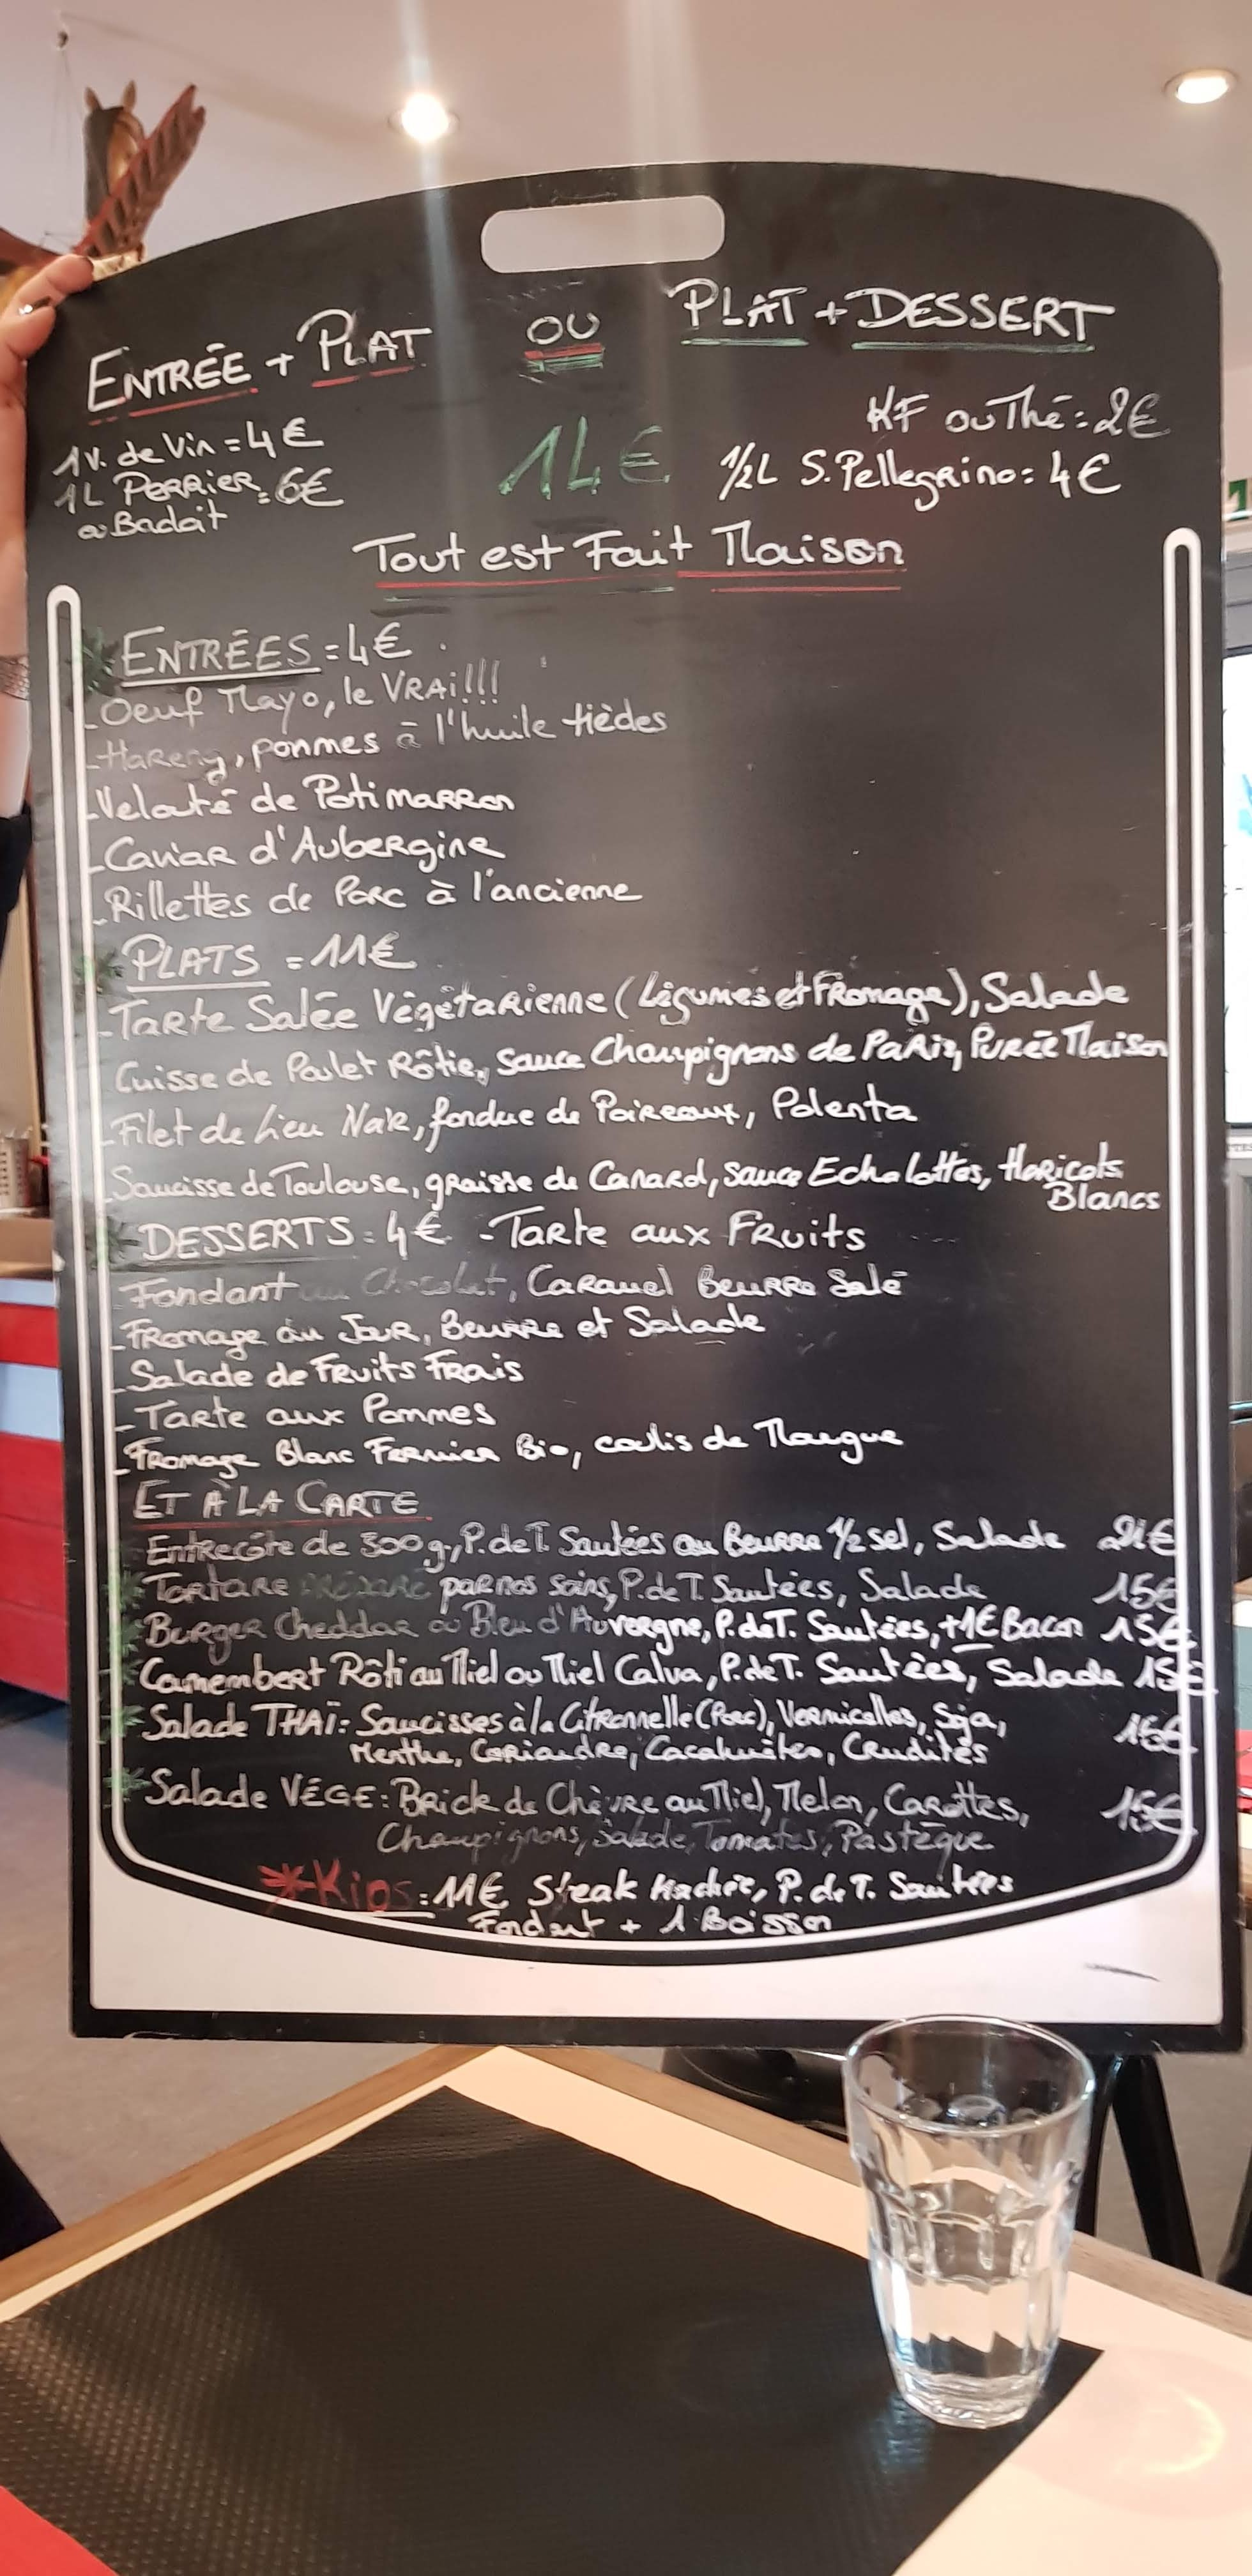 ENTRÉE + PLAT OU PLAT + DESSERT
14€
1 V. de Vin = 4€
1L PERRIER = 6€
ou Badoit
KF ou Thé = 2€
1/2L S. Pellegrino = 4€
Tout est Fait Maison
ENTRÉES = 4€
- Oeuf Mayo, le VRAI!!!
- Hareng, pommes à l'huile tièdes
- Velouté de Potimarron
- Caviar d'Aubergine
- Rillettes de Porc à l'ancienne
PLATS = 11€
- Tarte Salée Végétarienne (Légumes et Fromage), Salade
Cuisse de Poulet Rôtie, Sauce Champignons de Paris, Purée Maison
- Filet de Lieu Noir, fondue de Poireaux, Polenta
- Saucisse de Toulouse, graisse de Canard, Sauce Echalottes, Haricots
Blancs
DESSERTS = 4€ - Tarte aux Fruits
- Fondant au Chocolat, Caramel Beurre Salé
- Fromage du Jour, Beurre et Salade
- Salade de Fruits Frais
- Tarte aux Pommes
- Fromage Blanc Fermier Bio, coulis de Mangue
ET À LA CARTE
Entrecôte de 300g, P. de T. Sautées au Beurre 1/2 sel, Salade 21€
Tartare PRÉPARÉ par nos soins, P. de T. Sautées, Salade 15€
Burger Cheddar ou Bleu d'Auvergne, P. de T. Sautées, +1€ Bacon 15€
Camembert Rôti au Miel ou Miel Calva, P. de T. Sautées, Salade 15€
Salade THAÏ: Saucisses à la Citronnelle (Porc), Vermicelles, Soja, 15€
Menthe, Coriandre, Cacahuètes, Crudités
Salade VÉGÉ: Brick de Chèvre au Miel, Melon, Carottes, 15€
Champignons, Salade, Tomates, Pastèque
*KIDS = 11€ Steak Haché, P. de T. Sautées
Fondant + 1 Boisson